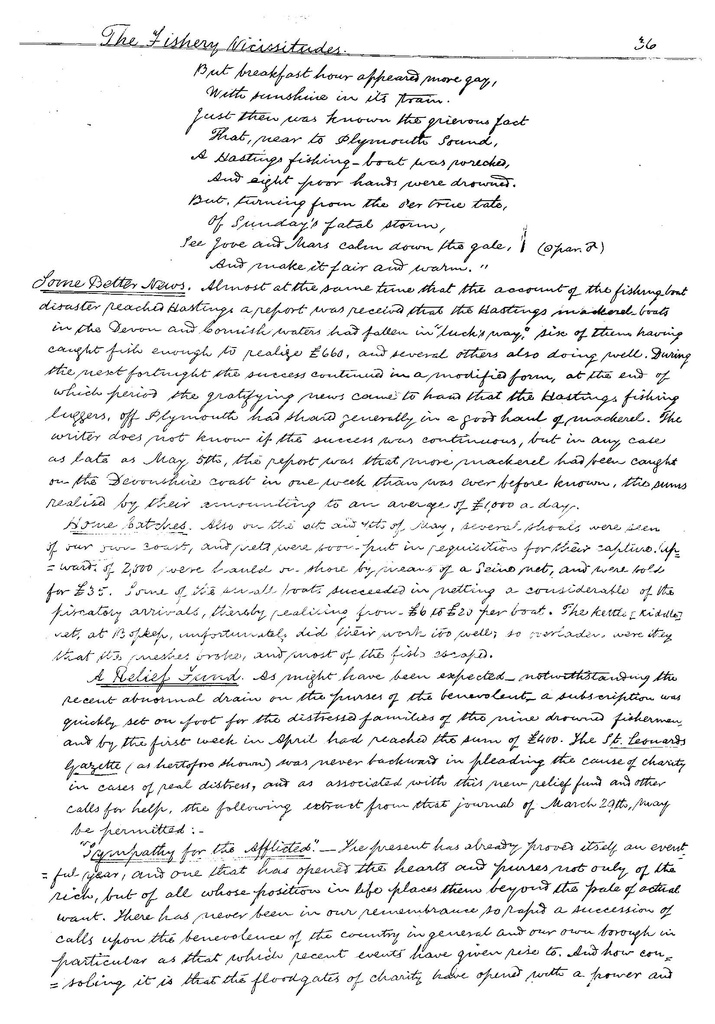 The Fishery Vicissitudes. 36
But breakfast hour appeared more gay,
With sunshine in its train.
Just then was known the grievous fact
That, near to Plymouth Sound,
A Hastings fishing-boat was wrecked,
And eight poor hands were drowned.
But, turning from the o'er true tale,
Of Sunday's fatal storm,
See Jove and Mars calm down the gale,
And make it fair and warm."
Some Better News. Almost at the same time that the account of the fishing boat
disaster reached Hastings a report was received that the Hastings mackerel boats
in the Devon and Cornish waters had fallen in "luck's way," six of them having
caught fish enough to realize £660, and several others also doing well. During
the next fortnight the success continued in a modified form, at the end of
which period the gratifying news came to hand that the Hastings fishing
luggers, off Plymouth had shared generally in a good haul of mackerel. The
writer does not know if the success was continuous, but in any case
as late as May 5th, the report was that more mackerel had been caught
on the Devonshire coast in one week than was ever before known, the sums
realised by their amounting to an average of £1,000 a day.
Home Catches. Also on the and 4th of May, several shoals were seen
of our own coast, and nets were soon put in requisition for their capture. Up=
=wards of 2,000 were hauld on shore by means of a Seine net, and were sold
for £35. Some of the small boats succeeded in netting a considerable of the
piscatory arrivals, thereby realising from £6 to £20 per boat. The kettle [Kiddle]
net, at Bopeep, unfortunately did their work too well; so overladen were they
that the meshes broke, and most of the fish escaped.
A Relief Fund. As might have been expected - notwithstanding the
recent abnormal drain on the purses of the benevolent - a subscription was
quickly set on foot for the distressed families of the nine drowned fishermen
and by the first week in April had reached the sum of £400. The St. Leonards
Gazette (as hertofore shown) was never backward in pleading the cause of charity
in cases of real distress, and as associated with this new relief fund and other
calls for help, the following extract from that journal of March 29th, may
be permitted:-
"Sympathy for the Afflicted." - The present has already proved itself an event=
=ful year, and one that has opened the hearts and purses not only of the
rich, but of all whose position in life places them beyond the pale of actual
want. There has never been in our remembrance so rapid a succession of
calls upon the benevolence of the country in general and our own borough in
particular as that which recent events have given rise to. And how con=
=soling it is that the floodgates of charity have opened with a power and